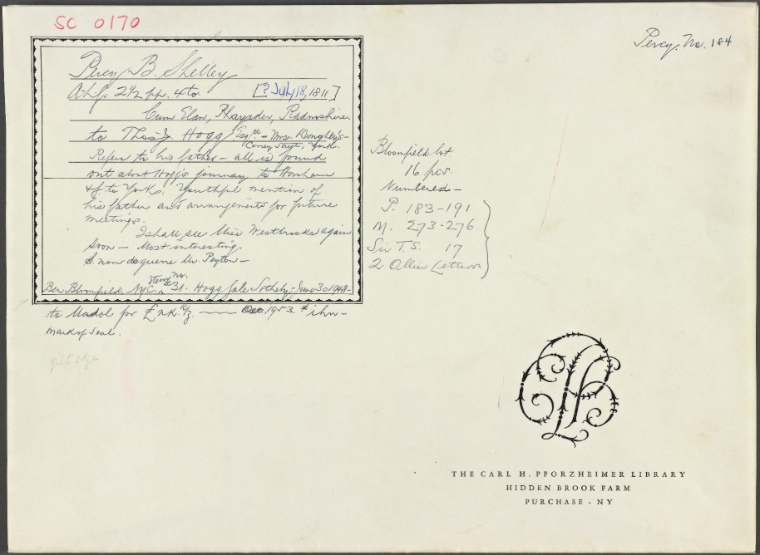 SC 0170
Percy, No. 184
Percy B. Shelley
A.L.S. 2 1/2 pp. 4to. [? July 18, 1811]
Cum Elan, Rhayader, Radnorshire.
to Thos. J. Hogg Esqre - Mrs. Coney Sayt., York.
Refers to his father - all is found
out about Hogg's journey to Horsham
& to York. Youthful mention of
his father and arrangements for future
meetings.
I shall see Miss Westbrooke again
soon - Most interesting.
Ben Bloomfield, NYC - Item No. 31. Hogg Sale Sotheby - June 30 1948 -
to Maddl for £ 1953
mark of seal.
Bloomfield lot
16 pcs.
Numbered -
P. 183-191
M. 273-276
Sir T.S. 17
2 Ollier Letters
THE CARL H. PFORZHEIMER LIBRARY
HIDDEN BROOK FARM
PURCHASE - NY